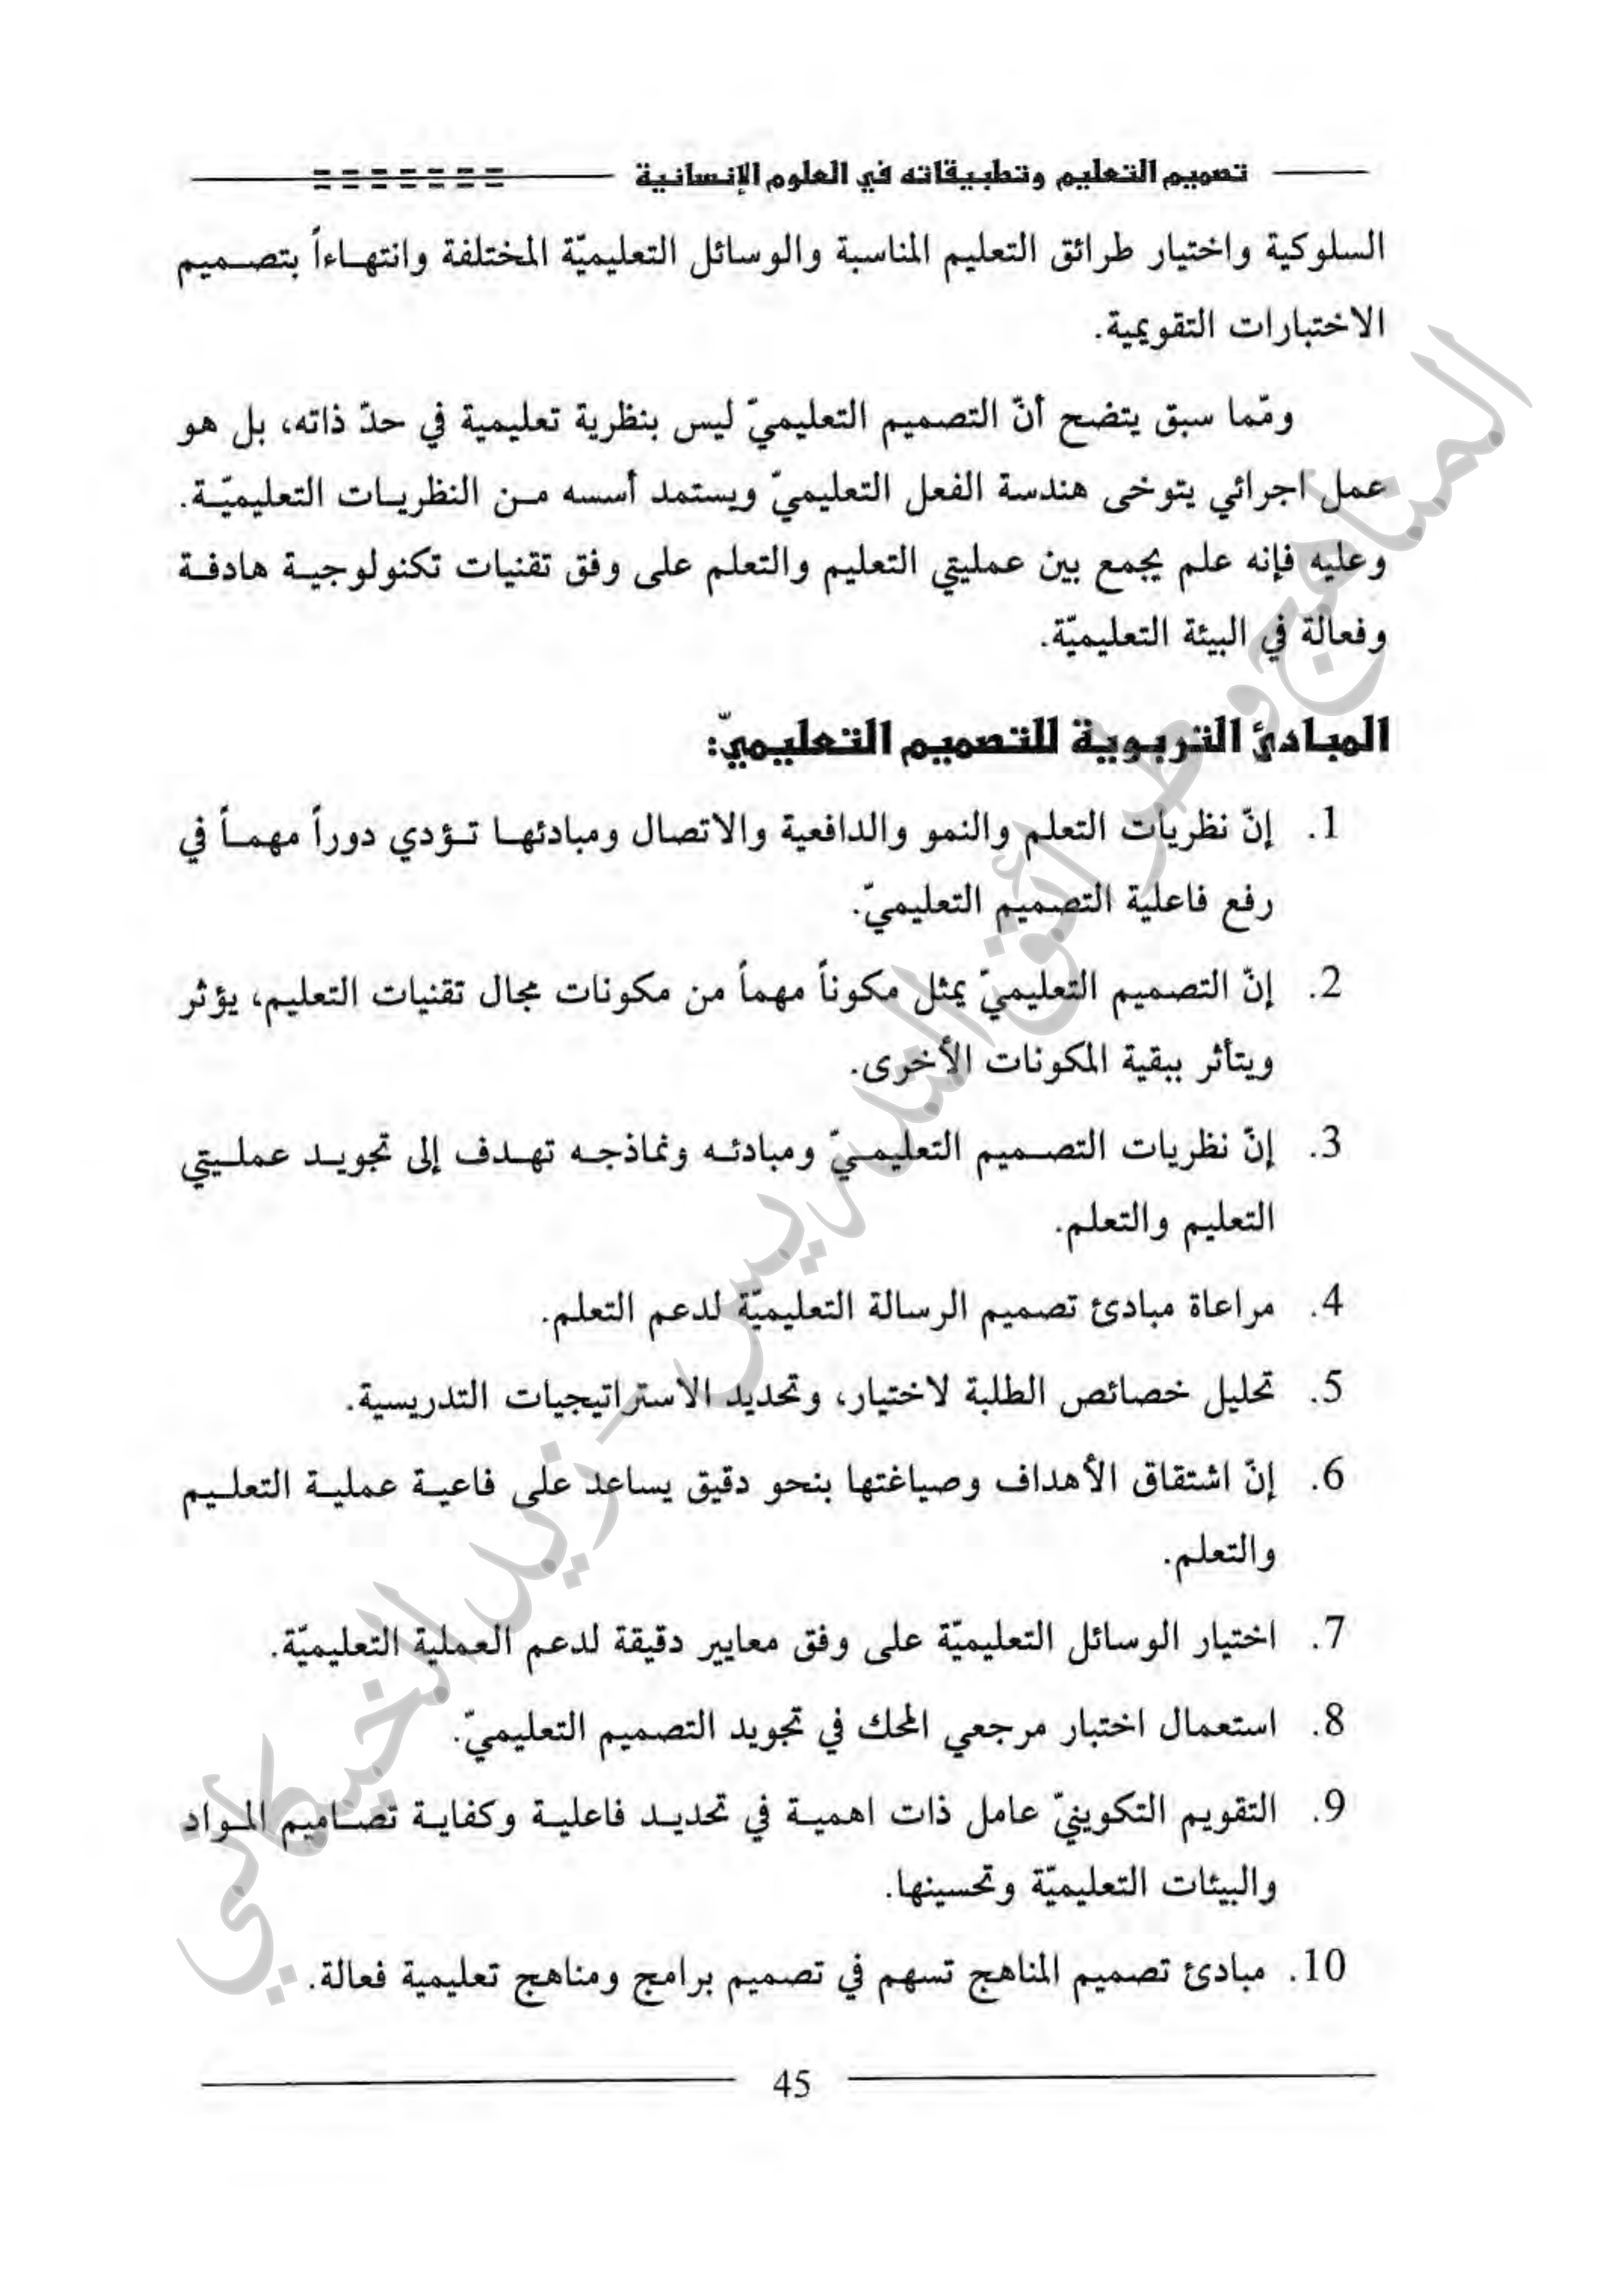 تصميم التعليم وتطبيقاته في العلوم الإنسانية
السلوكية واختيار طرائق التعليم المناسبة والوسائل التعليميّة المختلفة وانتهاءاً بتصميم
الاختبارات التقويمية.
وممّا سبق يتضح أنّ التصميم التعليميّ ليس بنظرية تعليمية في حدّ ذاته، بل هو
عمل اجرائي يتوخى هندسة الفعل التعليميّ ويستمد أسسه من النظريات التعليميّة.
وعليه فإنه علم يجمع بين عمليتي التعليم والتعلم على وفق تقنيات تكنولوجية هادفة
وفعالة في البيئة التعليميّة.
المبادئ التربوية للتصميم التعليميّ:
1. إنّ نظريات التعلم والنمو والدافعية والاتصال ومبادئها تؤدي دوراً مهماً في
رفع فاعلية التصميم التعليميّ.
2. إنّ التصميم التعليميّ يمثل مكوناً مهماً من مكونات مجال تقنيات التعليم، يؤثر
ويتأثر ببقية المكونات الأخرى.
3. إنّ نظريات التصميم التعليميّ ومبادئه ونماذجه تهدف إلى تجويد عمليتي
التعليم والتعلم.
4. مراعاة مبادئ تصميم الرسالة التعليميّة لدعم التعلم.
5. تحليل خصائص الطلبة لاختيار، وتحديد الاستراتيجيات التدريسية.
6. إنّ اشتقاق الأهداف وصياغتها بنحو دقيق يساعد على فاعية عملية التعليم
والتعلم.
7. اختيار الوسائل التعليميّة على وفق معايير دقيقة لدعم العملية التعليميّة.
8. استعمال اختبار مرجعي المحك في تجويد التصميم التعليميّ.
9. التقويم التكوينيّ عامل ذات اهمية في تحديد فاعلية وكفاية تصاميم المواد
والبيئات التعليميّة وتحسينها.
10. مبادئ تصميم المناهج تسهم في تصميم برامج ومناهج تعليمية فعالة.
45
المناهج وطرائق التدريس - زيد الخيكاني